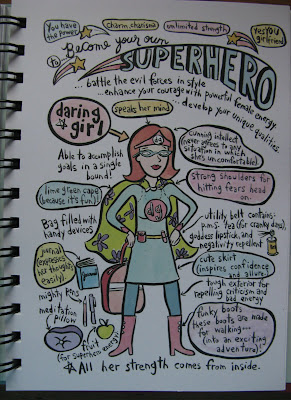 You have the Power!
charm, charisma
unlimited strength
Yes you girlfriend
to Become your own
SUPERHERO
... battle the evil forces in style
... enhance your courage with powerful female energy
... develop your unique qualities
daring girl
speaks her mind
Able to accomplish
goals in a single
bound!
lime green cape
(because it's fun)!
Bag filled with
handy devices
journal
(expresses
her thoughts
easily)
journal
mighty pens
meditation
pillow
fruit
(for superhero energy)
dg
cunning intellect
(never agrees to any
situation in which
she's uncomfortable)
strong shoulders for
hitting fears head
on.
utility belt contains:
p.m.s. tea (for cranky days),
goddess lipstick, and
negativity repellent
cute skirt
(inspires confidence
and allure)
tough exterior for
repelling criticism and
bad energy
funky boots
these boots are made
for walking...
(into an exciting
adventure)!
All her strength comes from inside.